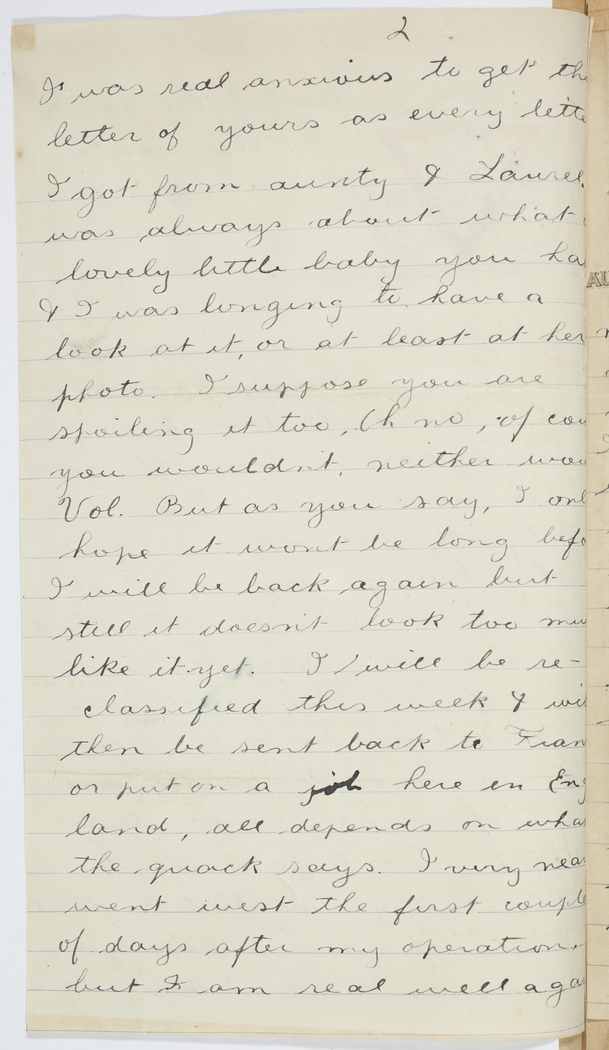 2
I was real anxious to get the
letter of yours as every lette
I got from aunty & Laurel
was always about what
lovely little baby you ha
& I was longing to have a
look at it, or at least at her
photo. I suppose you are
spoiling it too, Oh no, of cou
you wouldn't, neither wou
Vol. But as you say, I onl
hope it wont be long befo
I will be back again but
still it doesn't look too mu
like it yet. I will be re-
classified this week & wil
then be sent back to Fran
or put on a job here in Eng
land, all depends on wha
the quack says. I very near
went west the first couple
of days after my operation
but I am real well aga
AU